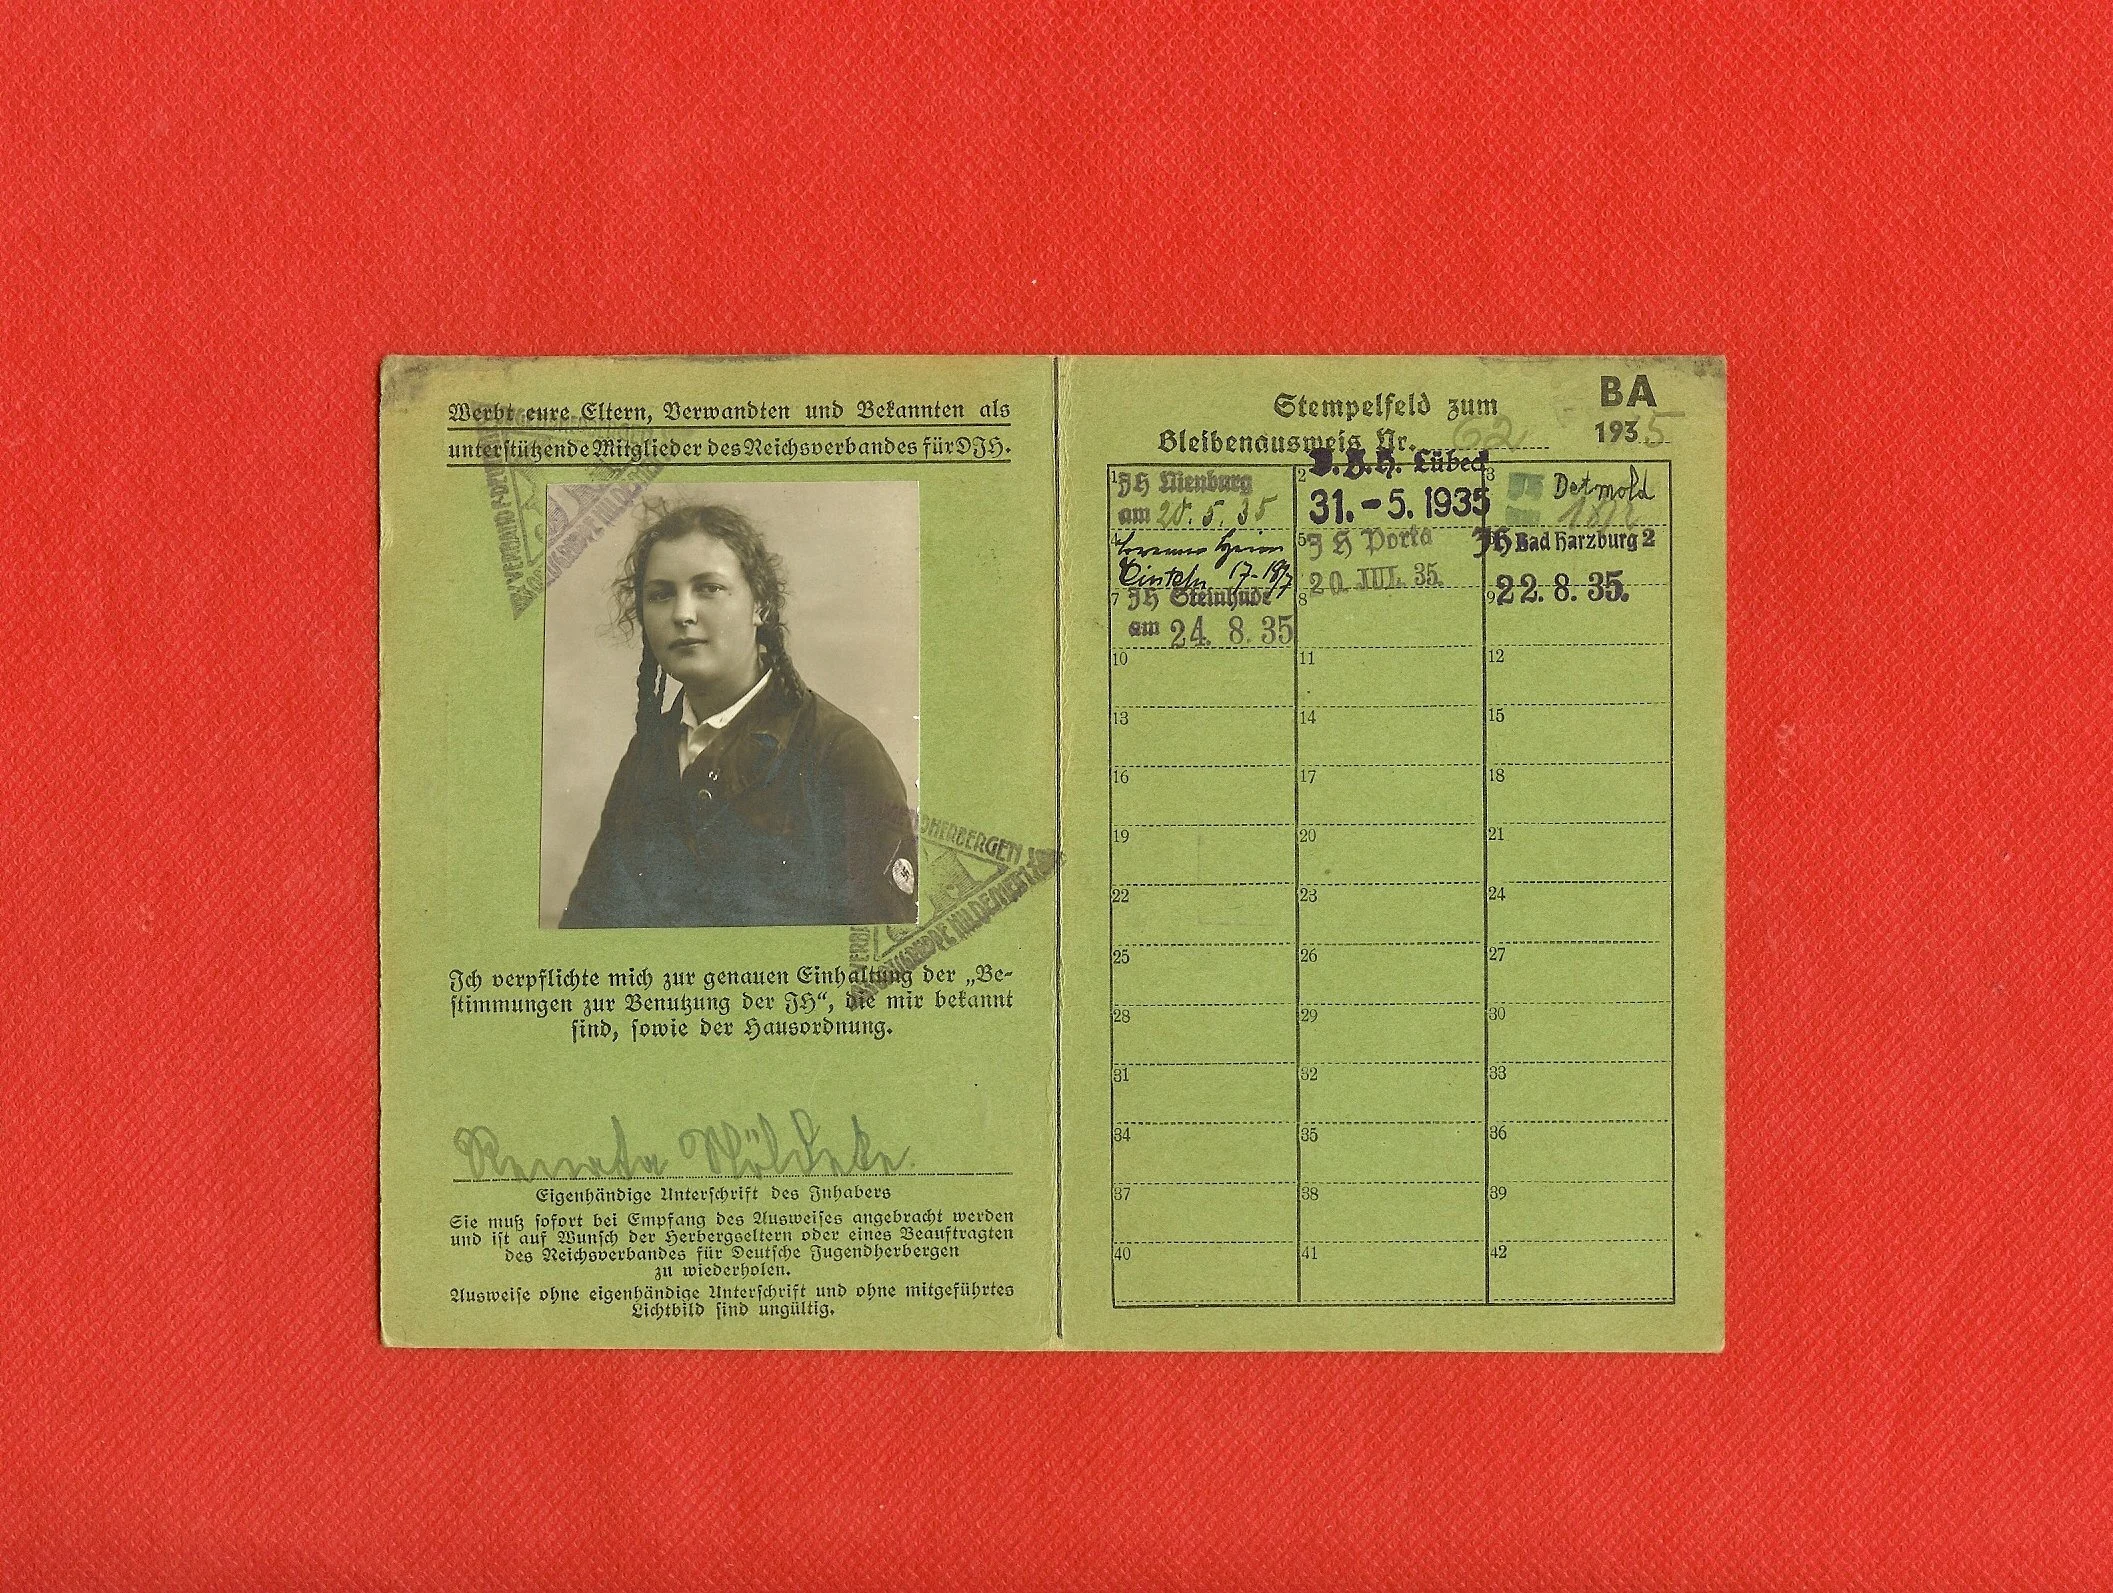 Werbt eure Eltern, Verwandten und Bekannten als
unterstützende Mitglieder des Reichsverbandes für DJH.
Ich verpflichte mich zur genauen Einhaltung der „Be-
stimmungen zur Benutzung der JH“, die mir bekannt
sind, sowie der Hausordnung.
Renata Nöldeke.
Eigenhändige Unterschrift des Inhabers
Sie muß sofort bei Empfang des Ausweises angebracht werden
und ist auf Wunsch der Herbergseltern oder eines Beauftragten
des Reichsverbandes für Deutsche Jugendherbergen
zu wiederholen.
Ausweise ohne eigenhändige Unterschrift und ohne mitgeführtes
Lichtbild sind ungültig.
Stempelfeld zum
Bleibenausweis Nr. 62
BA
1935
1 JH Nienburg
am 20. 5. 35
2 D. J. H. Lübeck
31.-5. 1935
3 Detmold
4
17-18/7
5 JH Porta
20. JUL. 35.
JH Bad Harzburg 2
22. 8. 35.
7 JH Steinhude
am 24. 8. 35
8
9
10 11 12
13 14 15
16 17 18
19 20 21
22 23 24
25 26 27
28 29 30
31 32 33
34 35 36
37 38 39
40 41 42